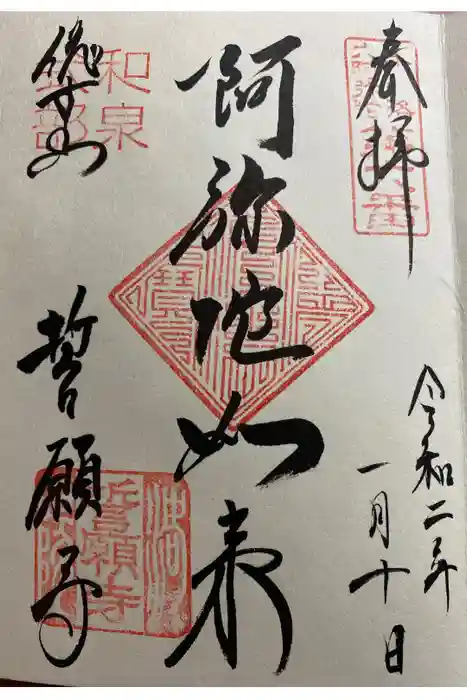 奉拝
令和二年
一月十日
阿弥陀如来
和泉
式部
誓願寺
誓願寺